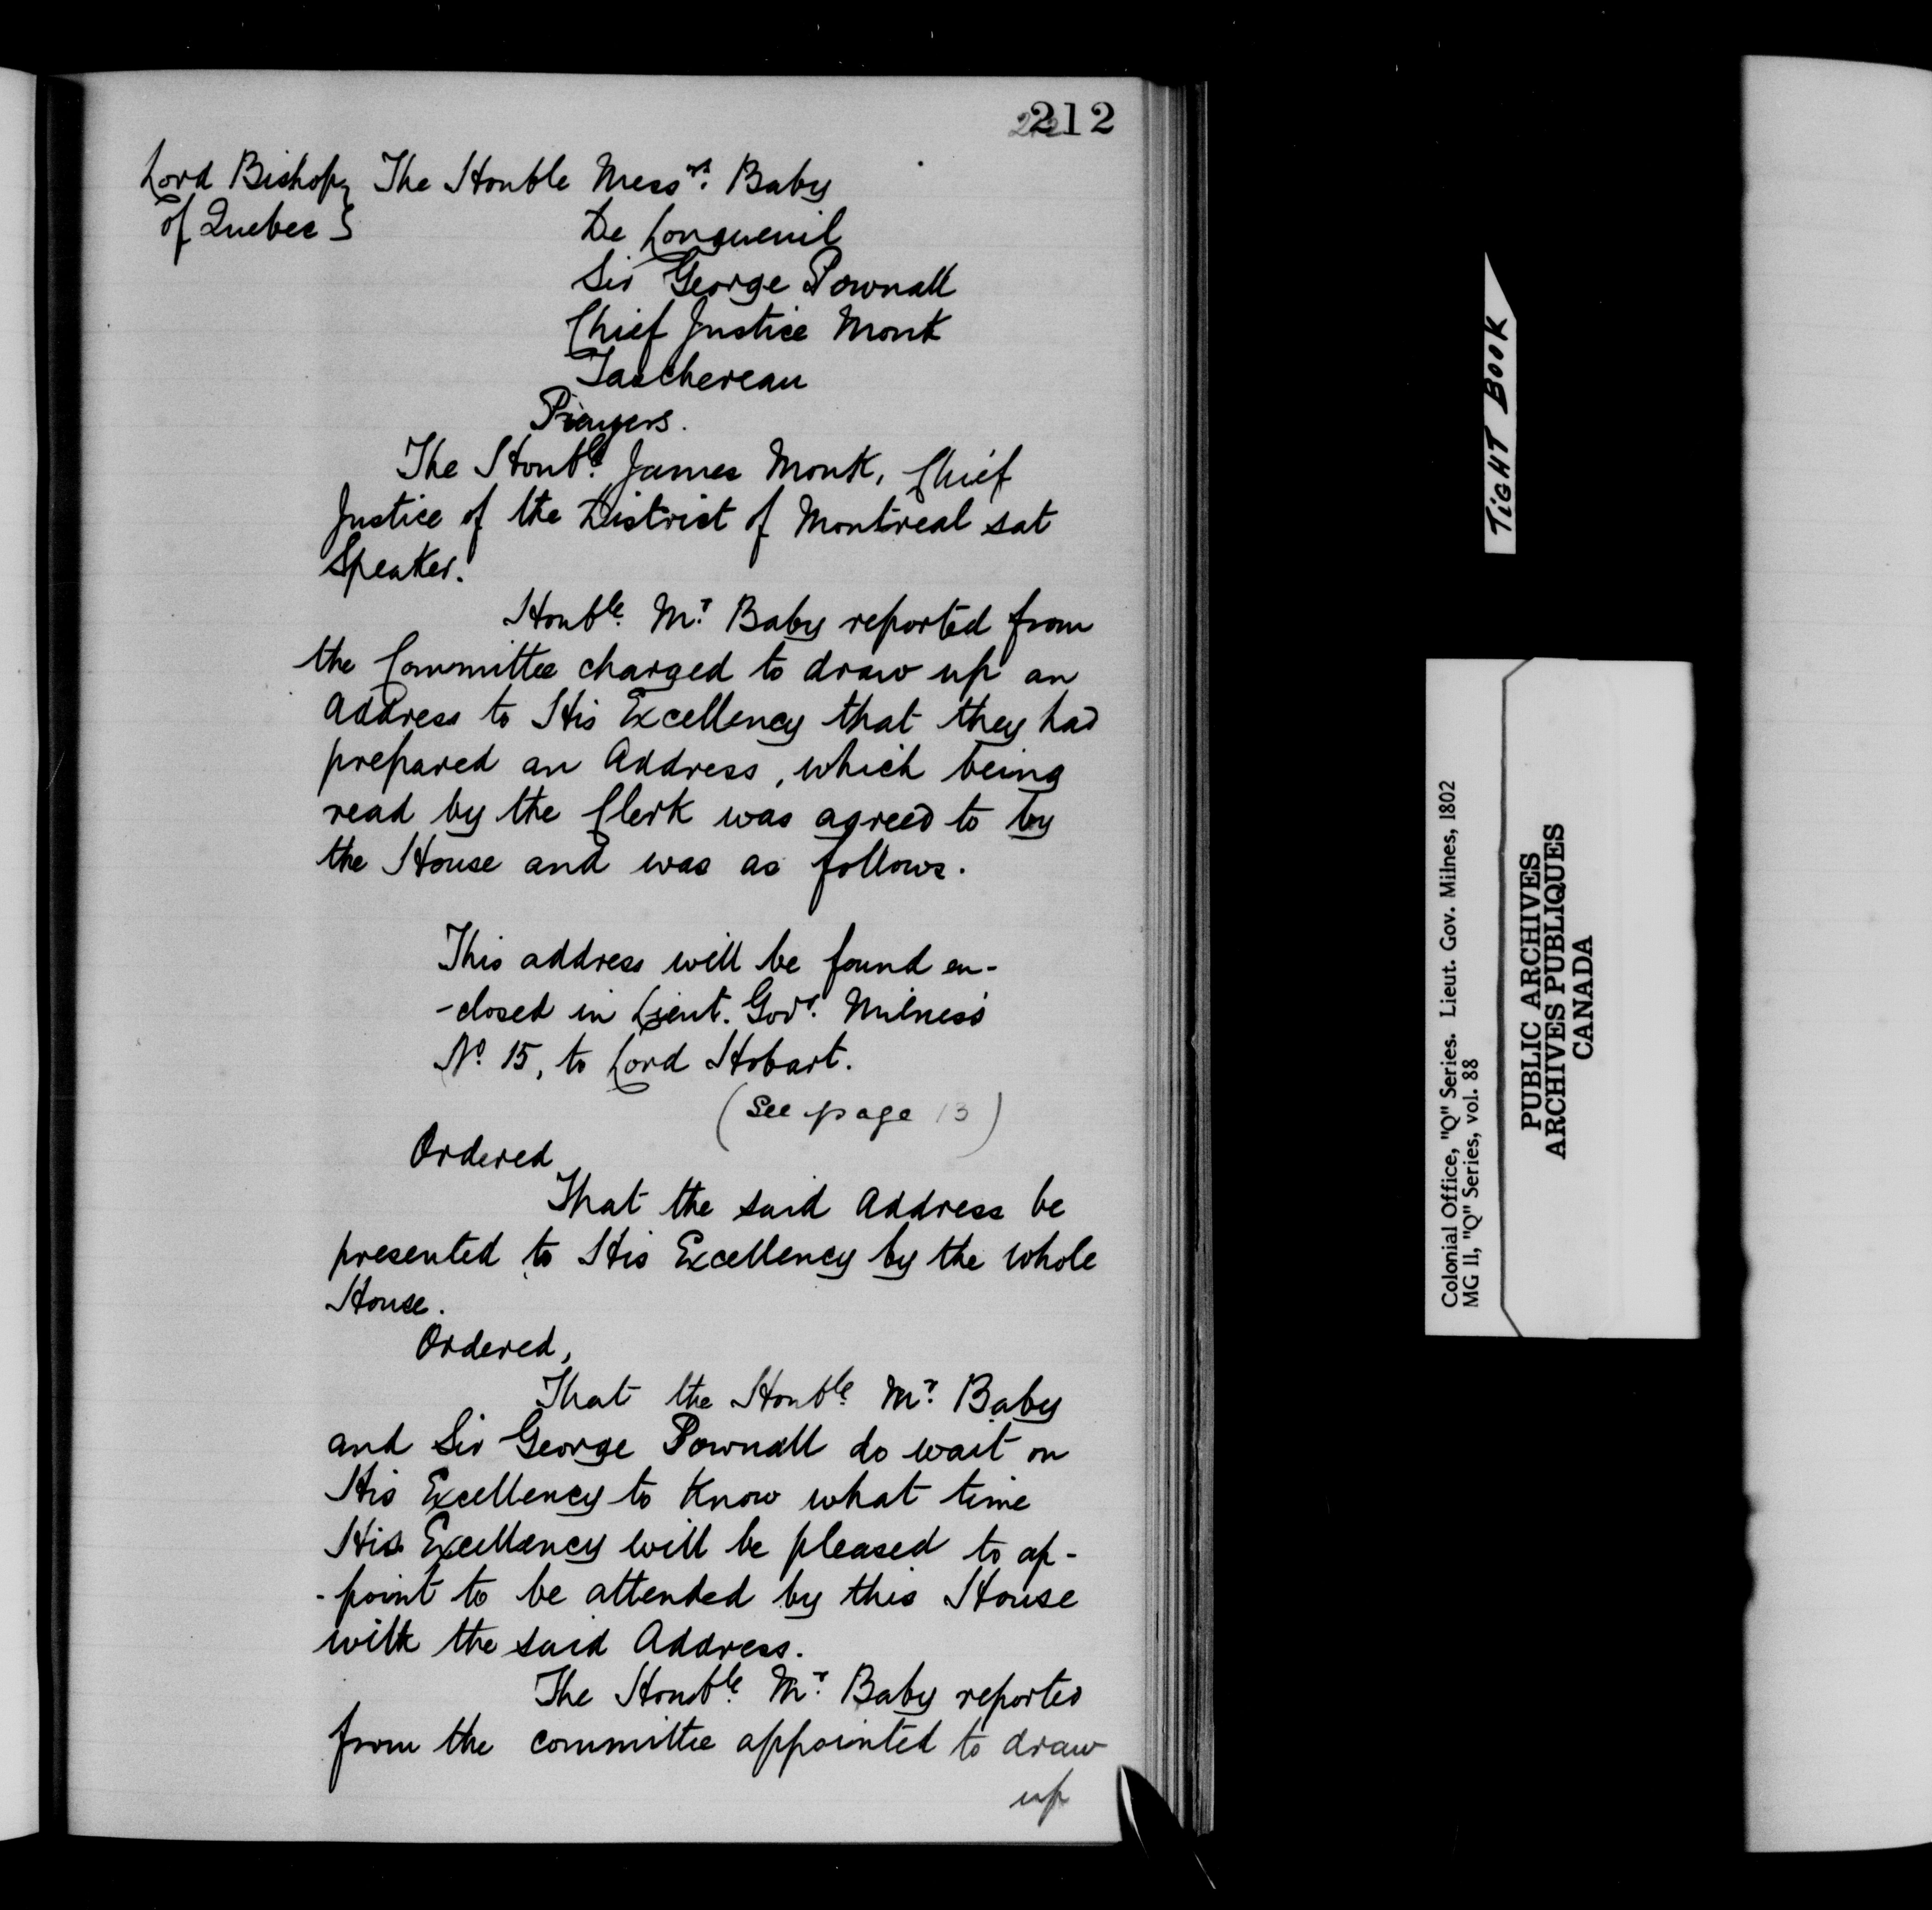 212
Lord Bishop } The Honble Messrs. Baby
of Quebec }
De Longueuil
Sir George Pownall
Chief Justice Monk
Taschereau
Prayers.
The Honble. James Monk, Chief
Justice of the District of Montreal sat
Speaker.
Honble. Mr. Baby reported from
the Committee charged to draw up an
Address to His Excellency that they had
prepared an Address, which being
read by the Clerk was agreed to by
the House and was as follows.
This address will be found en-
-closed in Lieut. Govr. Milnes's
No 15, to Lord Hobart.
(See page 13)
Ordered
That the said Address be
presented to His Excellency by the whole
House.
Ordered,
That the Honble. Mr. Baby
and Sir George Pownall do wait on
His Excellency to know what time
His Excellency will be pleased to ap-
-point to be attended by this House
with the said Address.
The Honble. Mr. Baby reported
from the committee appointed to draw
up
TIGHT BOOK
Colonial Office, "Q" Series. Lieut. Gov. Milnes, 1802
MG 11, "Q" Series, vol. 88
PUBLIC ARCHIVES
ARCHIVES PUBLIQUES
CANADA